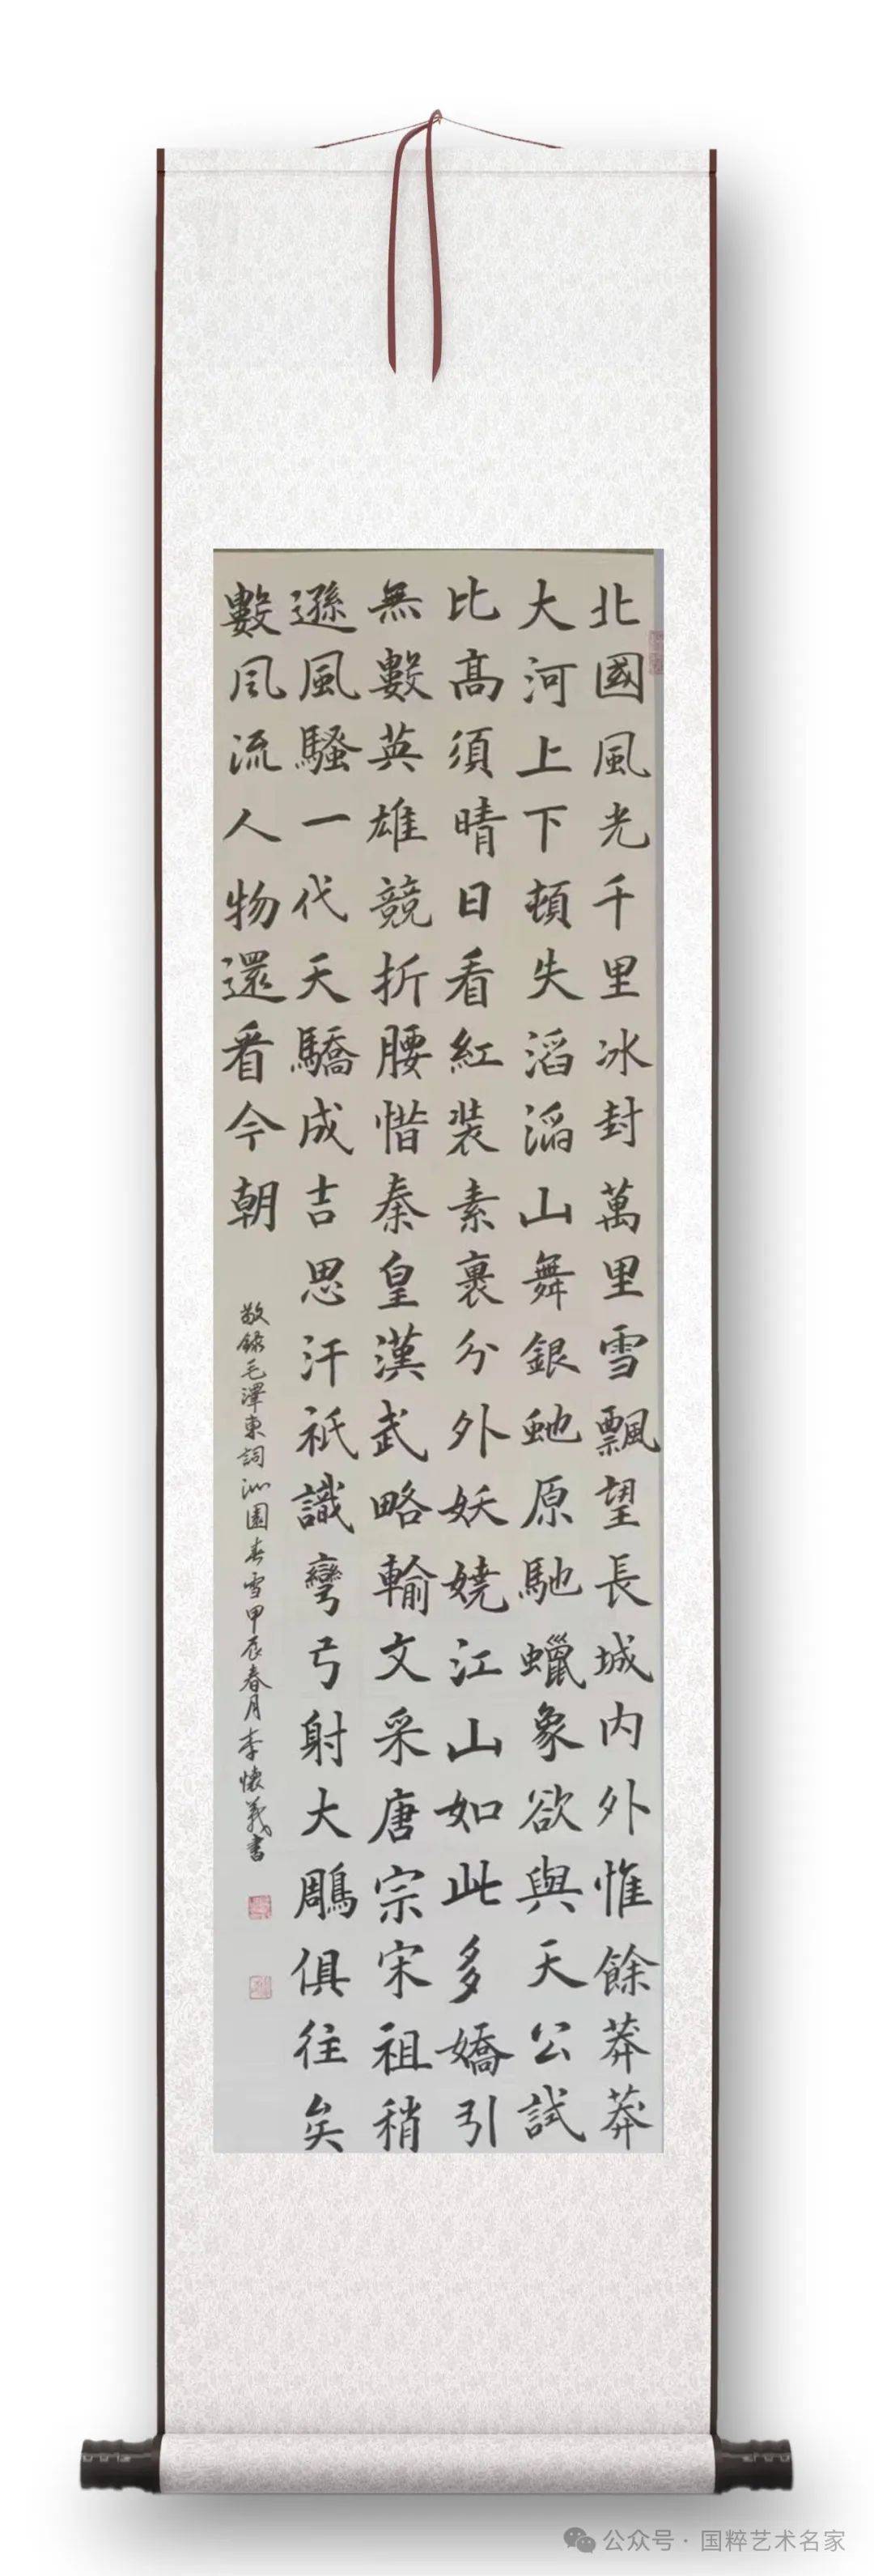 北國風光千里冰封萬里雪飄望長城内外惟餘莽莽
大河上下頓失滔滔山舞銀虵原馳蠟象欲與天公試
比髙須晴日看紅装素裹分外妖嬈江山如此多嬌引
無數英雄競折腰惜秦皇漢武略輸文采唐宗宋祖稍
遜風騷一代天驕成吉思汗祇識彎弓射大鵰俱往矣
數風流人物還看今朝
敬錄毛澤東詞沁園春雪甲辰春月李懷義書
公众号 · 国粹艺术名家